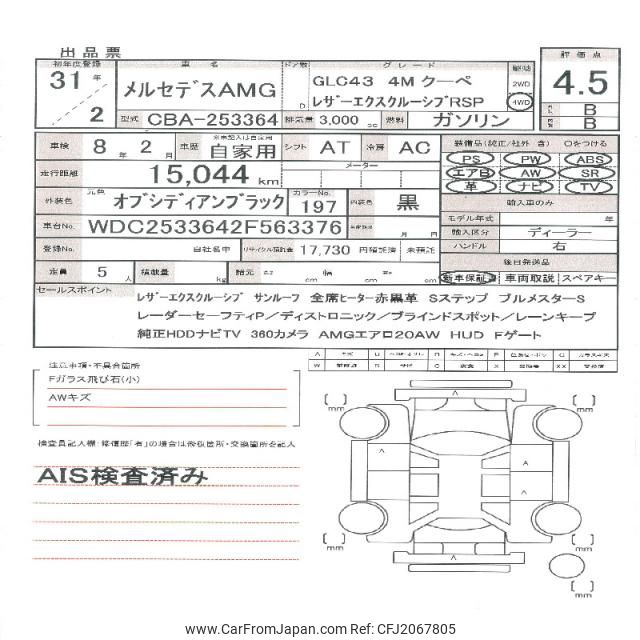 出品票
初年度登録 車名 ドア数 グレード 駆動 評価点
31 年 2
メルセデスAMG D
GLC43 4M クーペ
レザーエクスクルーシブRSP
2WD
4WD
4.5
B
B
型式 CBA-253364 排気量 3,000 cc 燃料 ガソリン
車検 8 年 2 月 車歴 自家用 シフト AT 冷房 AC
装備品(純正/社外 含) ○をつける
PS PW ABS
エアB AW SR
革 ナビ TV
走行距離 15,044 km メーター
外装色 元色 オブシディアンブラック カラーNo. 197 内装色 黒
輸入車のみ
モデル年式 年
車台No. WDC2533642F563376 年 月
輸入区分 ディーラー
登録No. 自社名中 リサイクル預託金 17,730 円預託済 未預託
ハンドル 右
後日発送品
定員 5 人 積載量 kg 諸元 長さ cm 幅 cm 高さ cm
新車保証書 車両取説 スペアキー
セールスポイント
レザーエクスクルーシブ サンルーフ 全席ヒーター赤黒革 Sステップ ブルメスターS
レーダーセーフティP/ディストロニック/ブラインドスポット/レーンキープ
純正HDDナビTV 360カメラ AMGエアロ20AW HUD Fゲート
注意事項・不具合箇所
Fガラス飛び石(小)
AWキズ
検査員記入欄・修復歴「有」の場合は修復箇所・交換箇所を記入
AIS検査済み
A A A A
mm mm
mm mm
mm
www.CarFromJapan.com Ref: CFJ2067805